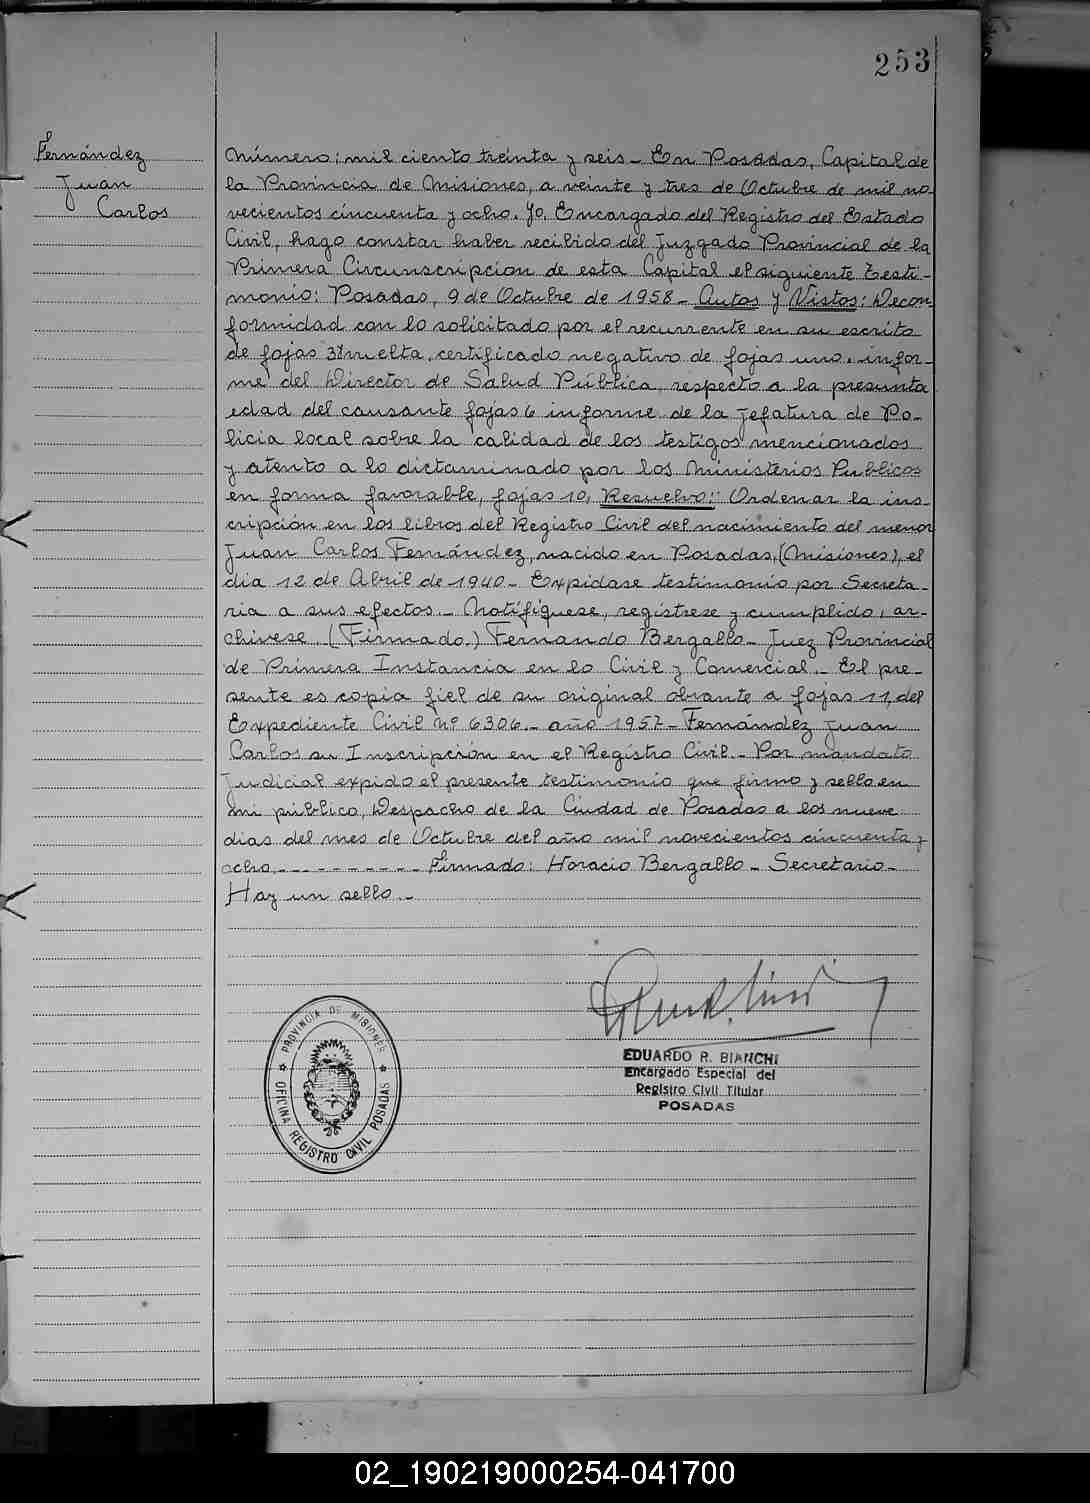 253
Fernández
Juan
Carlos
Número: mil ciento treinta y seis - En Posadas, Capital de
la Provincia de Misiones, a veinte y tres de Octubre de mil no-
vecientos cincuenta y ocho. Yo, Encargado del Registro del Estado
Civil, hago constar haber recibido del Juzgado Provincial de la
Primera Circunscripción de esta Capital el siguiente Testi-
monio: Posadas, 9 de Octubre de 1958 - Autos y Vistos: De con-
formidad con lo solicitado por el recurrente en su escrito
de fojas 3 vuelta, certificado negativo de fojas uno, infor-
me del Director de Salud Pública, respecto a la presunta
edad del causante fojas 6 informe de la Jefatura de Po-
licia local sobre la calidad de los testigos mencionados
y atento a lo dictaminado por los Ministerios Publicos
en forma favorable, fojas 10, Resuelvo: Ordenar la ins-
cripción en los libros del Registro Civil del nacimiento del menor
Juan Carlos Fernández, nacido en Posadas, (Misiones), el
dia 12 de Abril de 1940 - Expidase testimonio por Secreta-
ria a sus efectos. - Notifíquese, regístrese y cumplido, ar-
chivese. (Firmado.) Fernando Bergallo - Juez Provincial
de Primera Instancia en lo Civil y Comercial. - El pre-
sente es copia fiel de su original obrante a fojas 11, del
Expediente Civil Nº 6306. - año 1957 - Fernández Juan
Carlos su Inscripción en el Registro Civil. - Por mandato
Judicial expido el presente testimonio que firmo y sello en
mi público, Despacho de la Ciudad de Posadas a los nueve
dias del mes de Octubre del año mil novecientos cincuenta y
ocho. - - - - - - - - - - Firmado: Horacio Bergallo - Secretario -
Hay un sello. -
PROVINCIA DE MISIONES
OFICINA REGISTRO CIVIL POSADAS
EDUARDO R. BIANCHI
Encargado Especial del
Registro Civil Titular
POSADAS
02_190219000254-041700